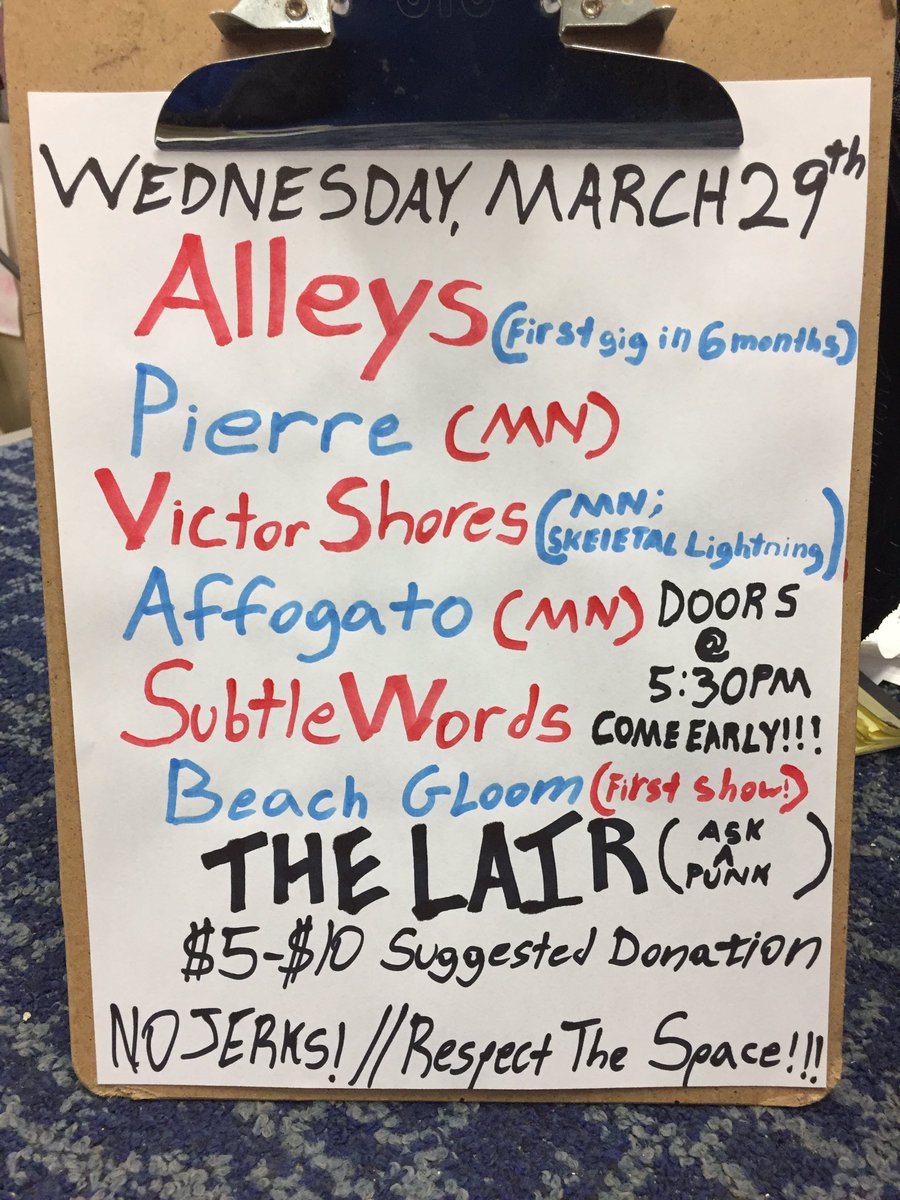 WEDNESDAY, MARCH 29th
Alleys (First gig in 6 months)
Pierre (MN)
Victor Shores (MN; SKElETAL Lightning)
Affogato (MN)
Subtle Words
DOORS
@
5:30PM
COME EARLY!!!
Beach Gloom (First show!)
THE LAIR (ASK A PUNK)
$5-$10 Suggested Donation
NO JERKS! // Respect The Space!!!